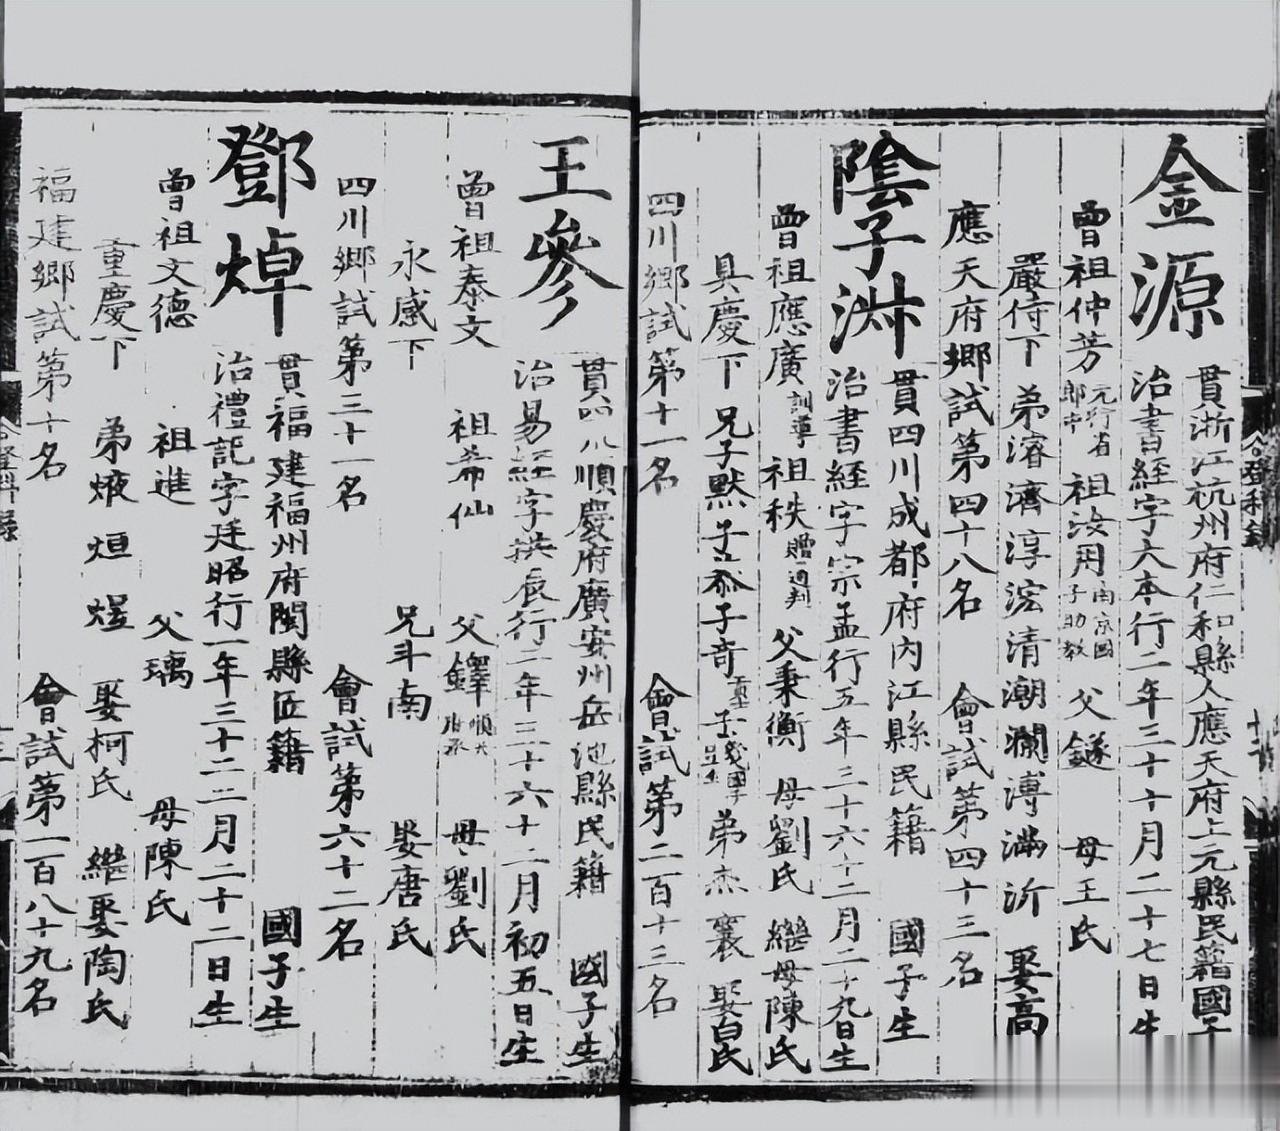 金源
貫浙江杭州府仁和縣人應天府上元縣民籍國子
治書經字大本行一年三十十月二十七日生
曾祖仲芳元行省郎中 祖汝用南京國子助教 父鐩 母王氏
嚴侍下 弟濬濟淳浤清潮瀾溥滿沂 娶高
應天府鄉試第四十八名 會試第四十三名
陰子淑
貫四川成都府內江縣民籍 國子生
治書經字宗孟行五年三十六十二月二十九日生
曾祖應廣訓導 祖秩贈通判 父秉衡 母劉氏 繼母陳氏
具慶下 兄子默 子 子奇 弟杰 襄 娶白氏
四川鄉試第十一名 會試第二百十三名
王參
貫四川順慶府廣安州岳池縣民籍 國子生
治易經字拱辰行二年三十六十二月初五日生
曾祖泰文 祖希仙 父鐸順天府丞 母劉氏
永感下 兄斗南 娶唐氏
四川鄉試第三十一名 會試第六十二名
鄧焯
貫福建福州府閩縣匠籍 國子生
治禮記字廷昭行一年三十二二月二十二日生
曾祖文德 祖進 父璃 母陳氏
重慶下 弟焲 烜 煋 娶柯氏 繼娶陶氏
福建鄉試第十名 會試第一百八十九名